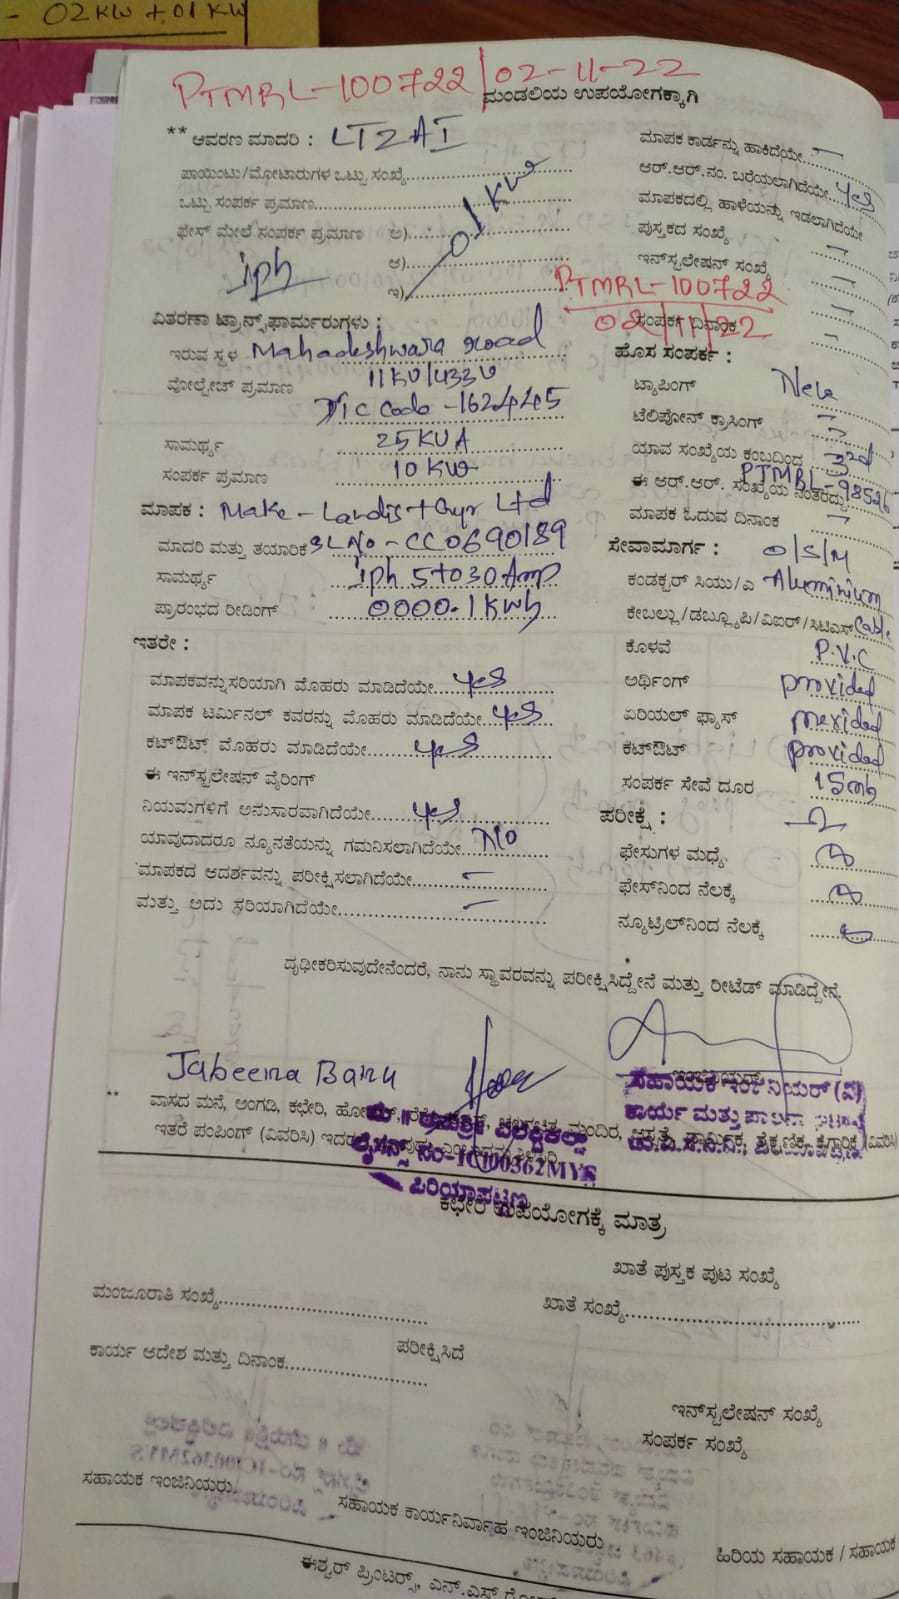 - 02KW + 01 KW
PTMRL-100722/02-11-22
ಮಂಡಲಿಯ ಉಪಯೋಗಕ್ಕಾಗಿ
** ಆವರಣ ಮಾದರಿ : LT2AI
ಪಾಯಿಂಟು/ಮೋಟಾರುಗಳ ಒಟ್ಟು ಸಂಖ್ಯೆ
ಒಟ್ಟು ಸಂಪರ್ಕ ಪ್ರಮಾಣ
ಫೇಸ್ ಮೇಲೆ ಸಂಪರ್ಕ ಪ್ರಮಾಣ ಅ)
1ph ಆ)
ಇ)
01KW
ವಿತರಣಾ ಟ್ರಾನ್ಸ್‌ಫಾರ್ಮರುಗಳು :
ಇರುವ ಸ್ಥಳ Mahadeshwara road
ವೋಲ್ಟೇಜ್ ಪ್ರಮಾಣ 11KV/433V
Code -1624445
ಸಾಮರ್ಥ್ಯ 25KVA
ಸಂಪರ್ಕ ಪ್ರಮಾಣ 10KW
ಮಾಪಕ : Make - Landis + Gyr Ltd
ಮಾದರಿ ಮತ್ತು ತಯಾರಿಕೆ SLNo - CC0690189
ಸಾಮರ್ಥ್ಯ 1ph 5to30Amp
ಪ್ರಾರಂಭದ ರೀಡಿಂಗ್ 0000.1kwh
ಇತರೇ :
ಮಾಪಕವನ್ನು ಸರಿಯಾಗಿ ಮೊಹರು ಮಾಡಿದೆಯೇ yes
ಮಾಪಕ ಟರ್ಮಿನಲ್ ಕವರನ್ನು ಮೊಹರು ಮಾಡಿದೆಯೇ yes
ಕಟ್‌ಔಟ್ ಮೊಹರು ಮಾಡಿದೆಯೇ yes
ಈ ಇನ್‌ಸ್ಟಲೇಷನ್ ವೈರಿಂಗ್
ನಿಯಮಗಳಿಗೆ ಅನುಸಾರವಾಗಿದೆಯೇ yes
ಯಾವುದಾದರೂ ನ್ಯೂನತೆಯನ್ನು ಗಮನಿಸಲಾಗಿದೆಯೇ No
ಮಾಪಕದ ಆದರ್ಶವನ್ನು ಪರೀಕ್ಷಿಸಲಾಗಿದೆಯೇ -
ಮತ್ತು ಅದು ಸರಿಯಾಗಿದೆಯೇ -
ಮಾಪಕ ಕಾರ್ಡನ್ನು ಹಾಕಿದೆಯೇ -
ಆರ್.ಆರ್.ನಂ. ಬರೆಯಲಾಗಿದೆಯೇ yes
ಮಾಪಕದಲ್ಲಿ ಹಾಳೆಯನ್ನು ಇಡಲಾಗಿದೆಯೇ
ಪುಸ್ತಕದ ಸಂಖ್ಯೆ -
ಇನ್‌ಸ್ಟಲೇಷನ್ ಸಂಖ್ಯೆ -
PTMRL-100722
ಸಂಪರ್ಕ ದಿನಾಂಕ 02/11/22
ಹೊಸ ಸಂಪರ್ಕ :
ಟ್ಯಾಪಿಂಗ್ New
ಟೆಲಿಪೋನ್ ಕ್ರಾಸಿಂಗ್ -
ಯಾವ ಸಂಖ್ಯೆಯ ಕಂಬದಿಂದ 3rd
ಈ ಆರ್.ಆರ್. ಸಂಖ್ಯೆಯ ನಂತರದ್ದು PTMRL-98526
ಮಾಪಕ ಓದುವ ದಿನಾಂಕ -
ಸೇವಾಮಾರ್ಗ : O/S/M
ಕಂಡಕ್ಟರ್ ಸಿಯು/ಎ Aluminium
ಕೇಬಲ್ಲು/ಡಬ್ಲ್ಯೂಪಿ/ವಿಐರ್/ಸಿಟಿಎಸ್ Cable
ಕೊಳವೆ P.V.C
ಅರ್ಥಿಂಗ್ provided
ಏರಿಯಲ್ ಫ್ಯೂಸ್
ಕಟ್‌ಔಟ್ provided
ಸಂಪರ್ಕ ಸೇವೆ ದೂರ 15mts
ಪರೀಕ್ಷೆ :
ಫೇಸುಗಳ ಮಧ್ಯೆ
ಫೇಸ್‌ನಿಂದ ನೆಲಕ್ಕೆ
ನ್ಯೂಟ್ರಿಲ್‌ನಿಂದ ನೆಲಕ್ಕೆ
ದೃಢೀಕರಿಸುವುದೇನೆಂದರೆ, ನಾನು ಸ್ಥಾವರವನ್ನು ಪರೀಕ್ಷಿಸಿದ್ದೇನೆ ಮತ್ತು ರೀಟೆಡ್ ಮಾಡಿದ್ದೇನೆ.
Jabeena Banu
ಸಹಾಯಕ ಇಂಜಿನಿಯರ್ (ವಿ)
ಕಾರ್ಯ ಮತ್ತು ಪಾಲನಾ ಘಟಕ
** ವಾಸದ ಮನೆ, ಅಂಗಡಿ, ಕಛೇರಿ, ಮಂದಿರ, ಆಸ್ಪತ್ರೆ, ಶೈಕ್ಷಣಿಕ, ಕೈಗಾರಿಕೆ (ವಿವರಿಸಿ)
ಇತರೆ ಪಂಪಿಂಗ್ (ವಿವರಿಸಿ)
ಲೈಸನ್ಸ್ ನಂ-1C100362MYS
ಪಿರಿಯಾಪಟ್ಟಣ
ಕಛೇರಿ ಉಪಯೋಗಕ್ಕೆ ಮಾತ್ರ
ಖಾತೆ ಪುಸ್ತಕ ಪುಟ ಸಂಖ್ಯೆ
ಮಂಜೂರಾತಿ ಸಂಖ್ಯೆ
ಖಾತೆ ಸಂಖ್ಯೆ
ಕಾರ್ಯ ಆದೇಶ ಮತ್ತು ದಿನಾಂಕ
ಪರೀಕ್ಷಿಸಿದೆ
ಇನ್‌ಸ್ಟಲೇಷನ್ ಸಂಖ್ಯೆ
ಸಂಪರ್ಕ ಸಂಖ್ಯೆ
ಸಹಾಯಕ ಇಂಜಿನಿಯರು
ಸಹಾಯಕ ಕಾರ್ಯನಿರ್ವಾಹ ಇಂಜಿನಿಯರು
ಹಿರಿಯ ಸಹಾಯಕ / ಸಹಾಯಕ
ಈಶ್ವರ್ ಪ್ರಿಂಟರ್ಸ್, ಎನ್.ಎಸ್